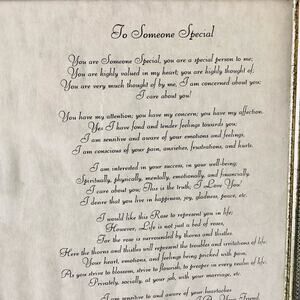 To Someone Special
You are Someone Special, you are a special person to me;
You are highly valued in my heart; you are highly thought of;
You are very much thought of by me, I am concerned about you;
I care about you!
You have my attention; you have my concern; you have my affection.
Yes I have fond and tender feelings towards you;
I am sensitive and aware of your emotions and feelings,
I am conscious of your pain, anxieties, frustrations, and hurts.
I am interested in your success, in your well-being;
Spiritually, physically, mentally, emotionally, and financially.
I care about you; This is the truth, I Love You!
I desire that you live in happiness, joy, gladness, peace, etc.
I would like this Rose to represent you in life;
However, Life is not just a bed of roses,
For the rose is surrounded by thorns and thistles.
Here the thorns and thistles will represent the troubles and irritations of life.
Your heart, emotions, and feelings being pricked with pain.
As you strive to blossom, strive to flourish, to prosper in every realm of life.
Privately, socially, at your job, with your marriage, etc.
I am sensitive to and aware of your heartaches